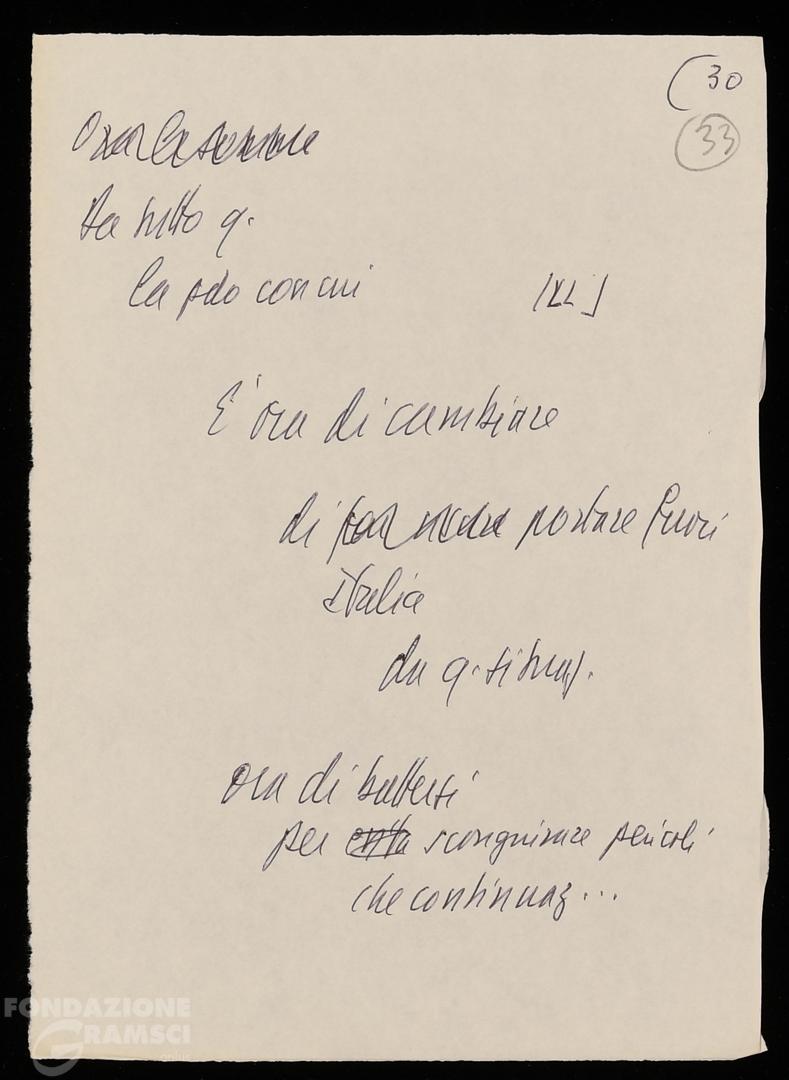 (30
33
Da tutto q.
la con cui
[XL]
E' ora di cambiare
di portare fuori
italia
da q. situaz.
ora di battersi
per scongiurare pericoli
che continuaz...
FONDAZIONE
GRAMSCI
onlus